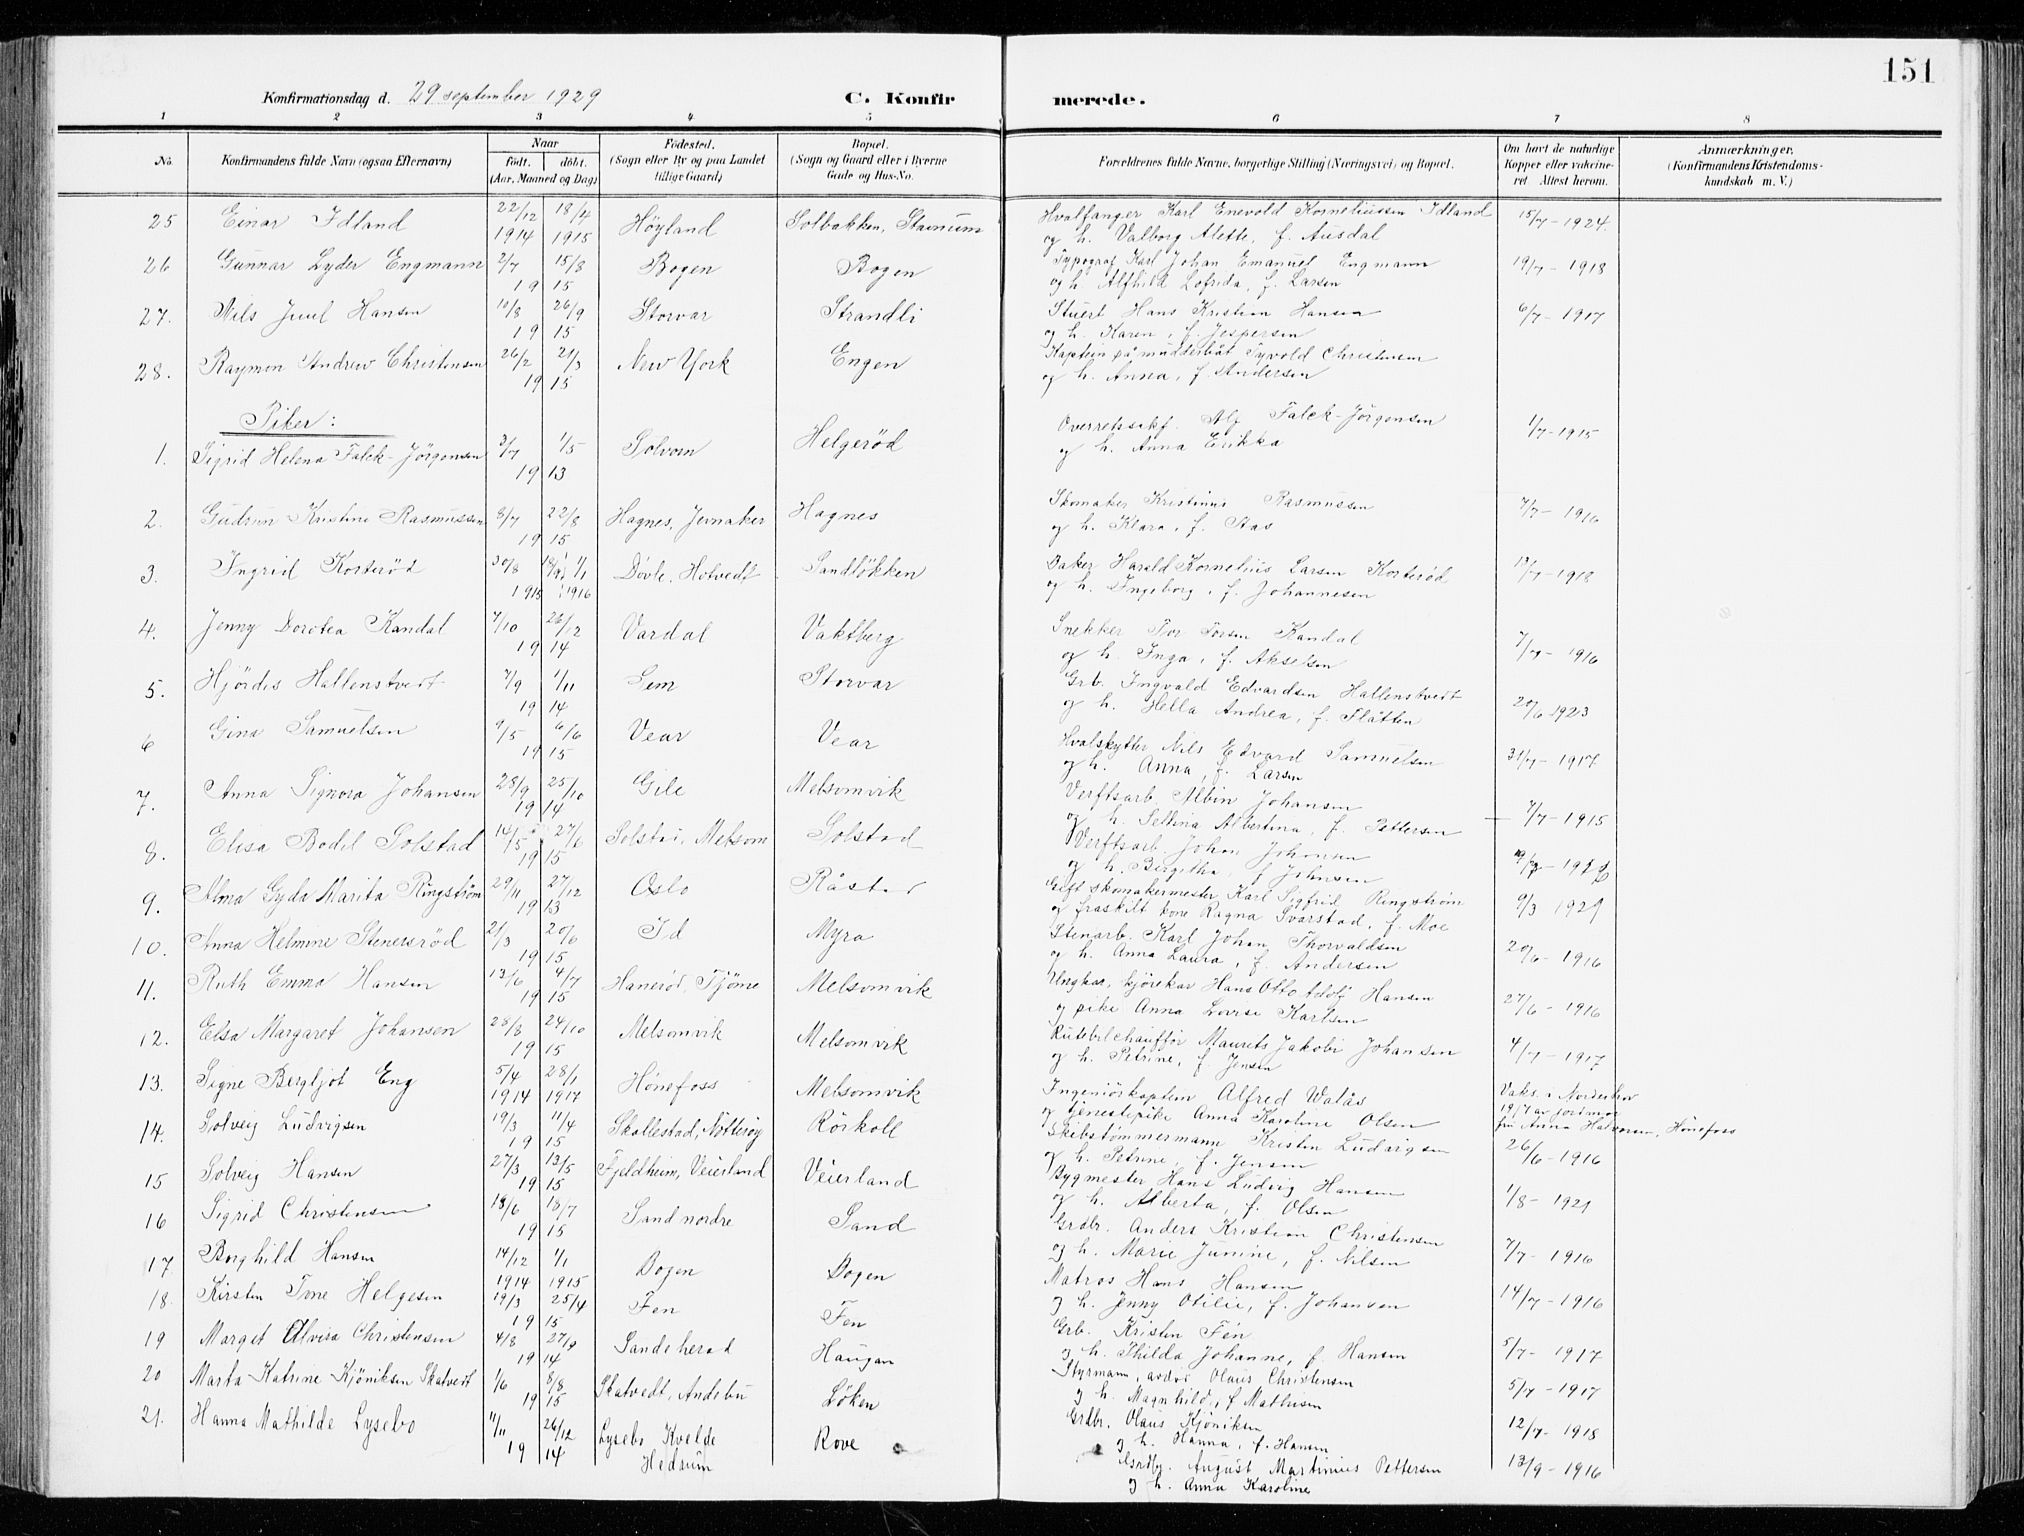 151
Konfirmationsdag d. 29 september 1929 C. Konfir merede.
1 2 3 4 5 6 7 8
No. Konfirmandens fulde Navn (ogsaa Efternavn) Naar født. døbt. (Aar, Maaned og Dag) Fødested. (Sogn eller By og paa Landet tillige Gaard) Bopæl. (Sogn og Gaard eller i Byerne Gade og Hus-No. Foreldrenes fulde Navne, borgerlige Stilling (Næringsvei) og Bopæl. Om havt de naturlige Kopper eller vakcineret. Attest herom. Anmærkninger. (Konfirmandens Kristendomskundskab m. V.)
25 Einar Idland 22/12 1914 18/4 1915 Höyland Solbakken, Stamum Hvalfanger Karl Enevold Korneliussen Idland 15/7 - 1924
og h. Valborg Alette, f. Ausdal
26 Gunnar Lyder Engmann 2/7 15/8 19 15 Bogen Bogen Typograf Karl Johan Emanuel Engmann 19/7 - 1918
og h. Alfhild Lofrida, f. Larsen
27. Nils Juul Hansen 10/8 26/9 19 15 Storvar Strandli Stuert Hans Kristian Hansen 6/7 - 1917
og h. Karen, f. Jespersen
28. Raymon Andrew Christensen 26/2 21/3 19 15 New York Engen Kaptein på mudderbåt Tyvold Christensen
og h. Anna, f. Andersen
Piker:
1. Sigrid Helena Falck-Jörgensen 3/7 1/5 19 13 Solvorn Helgeröd Overretssakf. Alf Falck-Jörgensen 1/7 - 1915
og h. Anna Erikka
2. Gudrun Kristine Rasmussen 8/7 22/8 19 15 Hagnes, Jevnaker Hagnes Skomaker Kristinus Rasmussen 7/7 - 1916
og h. Klara, f. Aas
3. Ingrid Korteröd 30/8 1915 1/1 1916 Dovle, Hotvedt Sandlökken Baker Harald Kornelius Larsen Korteröd 13/7 - 1918
og h. Ingeborg, f. Johannesen
4. Jenny Dorotea Kandal 7/10 26/12 19 14 Vardal Vaktberg Snekker Tor Torsen Kandal 7/7 - 1916
og h. Inga, f. Akselsen
5. Hjördis Hallenstvert 7/9 1/11 19 14 Sem Storvar Grb. Ingvald Edvardsen Hallenstvert 20/6 1923
og h. Hella Andrea, f. Flåtten
6 Gina Samuelsen 9/5 6/6 19 15 Vear Vear Hvalskytter Nils Edvard Samuelsen 31/7 - 1917
og h. Anna, f. Larsen
7. Anna Signora Johansen 28/9 25/10 19 14 Gile Melsomvik Verftsarb. Albin Johansen 7/7 - 1915
og h. Selma Albertina, f. Pettersen
8. Elisa Bodil Solstad 14/5 27/6 19 15 Solstad, Melsom Solstad Verftsarb. Johan Johansen
og h. Birgitha, f. Johnsen
9. Alma Gyda Marita Ringström 29/11 27/12 19 13 Oslo Råstad Gift skomakermester Karl Sigfrid Ringström 9/3 1929
og fraskilt kone Ragna Svarstad, f. Moe
10. Anna Helmine Stenersröd 21/3 20/6 19 15 Id Myra Stenarb. Karl Johan Thorvaldsen 20/6 - 1916
og h. Anna Laura, f. Andersen
11. Ruth Emma Hansen 13/6 4/7 19 15 Haneröd, Tjöme Melsomvik Ungkar, kjörekar Hans Otto Adolf Hansen 27/6 - 1916
og pike Anna Lovise Karlsen
12. Elsa Margaret Johansen 28/8 24/10 19 15 Melsomvik Melsomvik Rutebilchauffør Maurits Jakobi Johansen 4/7 - 1917
og h. Petrine, f. Jensen
13. Signe Bergljot Eng 5/4 1914 28/1 1917 Hönefoss Melsomvik Ingeniörkaptein Alfred Walås Vaks. i Norderhov
og tjenestepike Anna Karoline Olsen 19/7 av jordmor
frk Anna Halvorsen, Hönefoss
14. Solveig Ludvigsen 19/3 11/4 19 15 Skallestad, Nötteröy Rörkoll Skibstömmermann Kristen Ludvigsen 26/6 - 1916
og h. Petrine, f. Jensen
15 Solveig Hansen 27/3 13/5 19 15 Fjeldheim, Veierland Veierland Bygmester Hans Ludvig Hansen 1/8 - 1921
og h. Alberta, f. Olsen
16 Sigrid Christensen 18/6 18/7 19 15 Sand nordre Sand Grdbr. Anders Kristian Christensen 7/7 - 1916
og h. Marie Junine, f. Nilsen
17 Borghild Hansen 14/12 1914 1/1 1915 Bogen Bogen Matros Hans Hansen 14/7 - 1916
og h. Jenny Otilie, f. Johansen
18. Kirsten Tone Helgesen 19/3 25/4 19 15 Fen Fen Grb. Kristen Fen 5/7 - 1917
og h. Thilda Johanne, f. Hansen
19 Margit Alvira Christensen 4/8 27/9 19 14 Sandeherad Haugan Styrmann, avdöd Olaus Christensen 5/7 - 1917
og h. Magnhild, f. Mathisen
20 Marta Katrine Kjöniksen Skatvedt 1/6 8/8 19 15 Skatvedt, Andebu Löken Grdbr. Olaus Kjöniksen 12/7 - 1918
og h. Hanna, f. Hansen
21. Hanna Mathilde Lysebo 11/11 26/12 19 14 Lysebo Kvelde Hedrum Rove Grdbr. August Martinius Pettersen 13/9 - 1916
og h. Anna Karoline